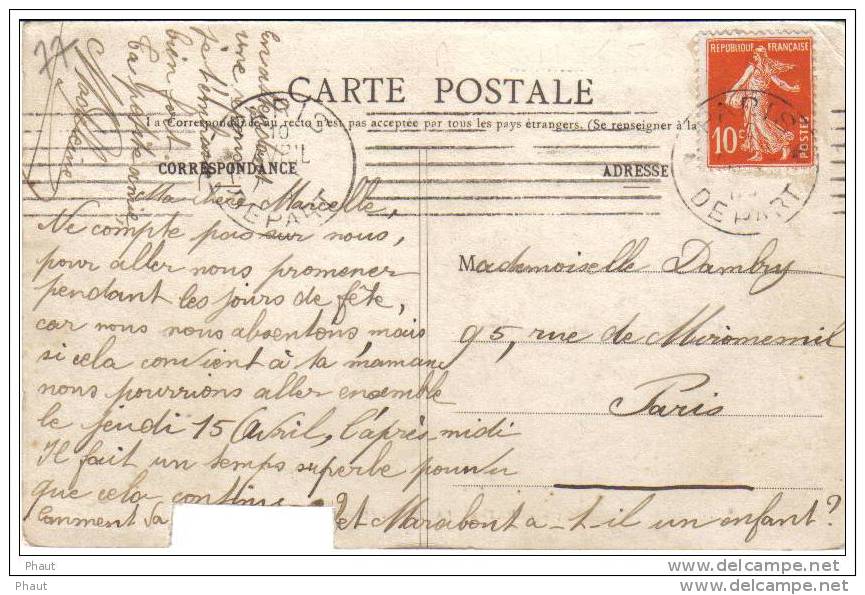 77
CARTE POSTALE
La Correspondance au recto n'est pas acceptée par tous les pays étrangers. (Se renseigner à la
CORRESPONDANCE
ADRESSE
REPUBLIQUE FRANÇAISE
10c
POSTES
PARIS
DEPART
DEPART
Ma chère Marcelle,
Ne compte pas sur nous,
pour aller nous promener
pendant les jours de fête,
car nous nous absentons, mais
si cela convient à ta maman
nous pourrions aller ensemble
le jeudi 15 Avril, l'après midi
Il fait un temps superbe pourvu
que cela continue
Comment va
? et Marabout a-t-il un enfant?
En attendant
une
je t'embrasse
bien fort.
Ta petite amie,
Mademoiselle Dambry
95, rue de Miromenil
Paris
Phaut
Phaut
www.delcampe.net
www.delcampe.net